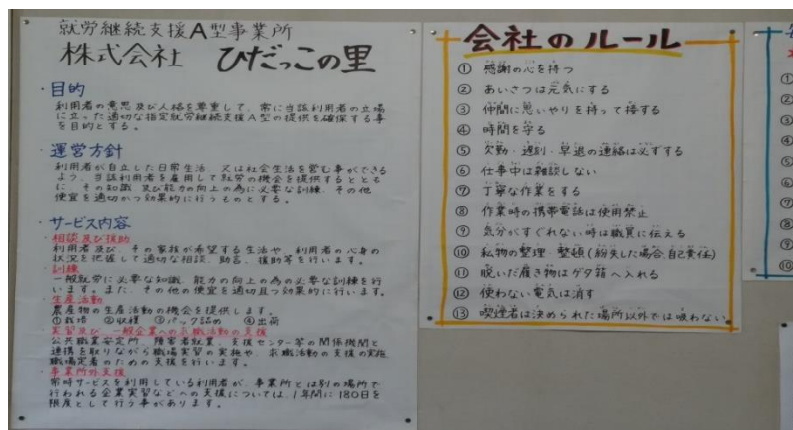 就労継続支援A型事業所
株式会社 ひだっこの里
・目的
利用者の意思及び人格を尊重して、常に当該利用者の立場
に立った適切な指定就労継続支援A型の提供を確保する事
を目的とする。
・運営方針
利用者が自立した日常生活、又は社会生活を営む事ができる
よう、当該利用者を雇用して就労の機会を提供するととも
に、その知識及び能力の向上の為に必要な訓練、その他
便宜を適切かつ効果的に行うものとする。
・サービス内容
・相談及び援助
利用者及び、その家族が希望する生活や、利用者の心身の
状況を把握して適切な相談、助言、援助等を行います。
・訓練
一般就労に必要な知識、能力の向上の為の必要な訓練を行
います。また、その他の便宜を適切且つ効果的に行います。
・生産活動
農産物の生産活動の機会を提供します。
①栽培 ②収穫 ③パック詰め ④出荷
・実習及び、一般企業への求職活動の支援
公共職業安定所、障害者就業、支援センター等の関係機関と
連携を取りながら職場実習の実施や、求職活動の支援の実施、
職場定着のための支援を行います。
・事業所外支援
常時サービスを利用している利用者が、事業所とは別の場所で
行われる企業実習などへの支援については、1年間に180日を
限度として行う事があります。
会社のルール
① 感謝の心を持つ
② あいさつは元気にする
③ 仲間に思いやりを持って接する
④ 時間を守る
⑤ 欠勤・遅刻・早退の連絡は必ずする
⑥ 仕事中は雑談しない
⑦ 丁寧な作業をする
⑧ 作業時の携帯電話は使用禁止
⑨ 気分がすぐれない時は職員に伝える
⑩ 私物の整理・整頓(紛失した場合自己責任)
⑪ 脱いだ履き物はゲタ箱へ入れる
⑫ 使わない電気は消す
⑬ 喫煙者は決められた場所以外では吸わない
①
②
③
④
⑤
⑥
⑦
⑧
⑨
⑩